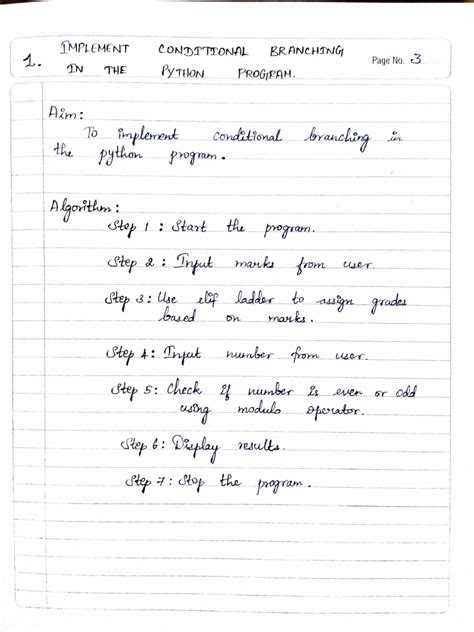 1. IMPLEMENT CONDITIONAL BRANCHING
IN THE PYTHON PROGRAM.
Page No. 3
Aim:
To implement conditional branching in
the python program.
Algorithm:
Step 1 : Start the program.
Step 2 : Input marks from user.
Step 3 : Use elif ladder to assign grades
based on marks.
Step 4 : Input number from user.
Step 5 : Check if number is even or odd
using modulo operator.
Step 6 : Display results.
Step 7 : Stop the program.